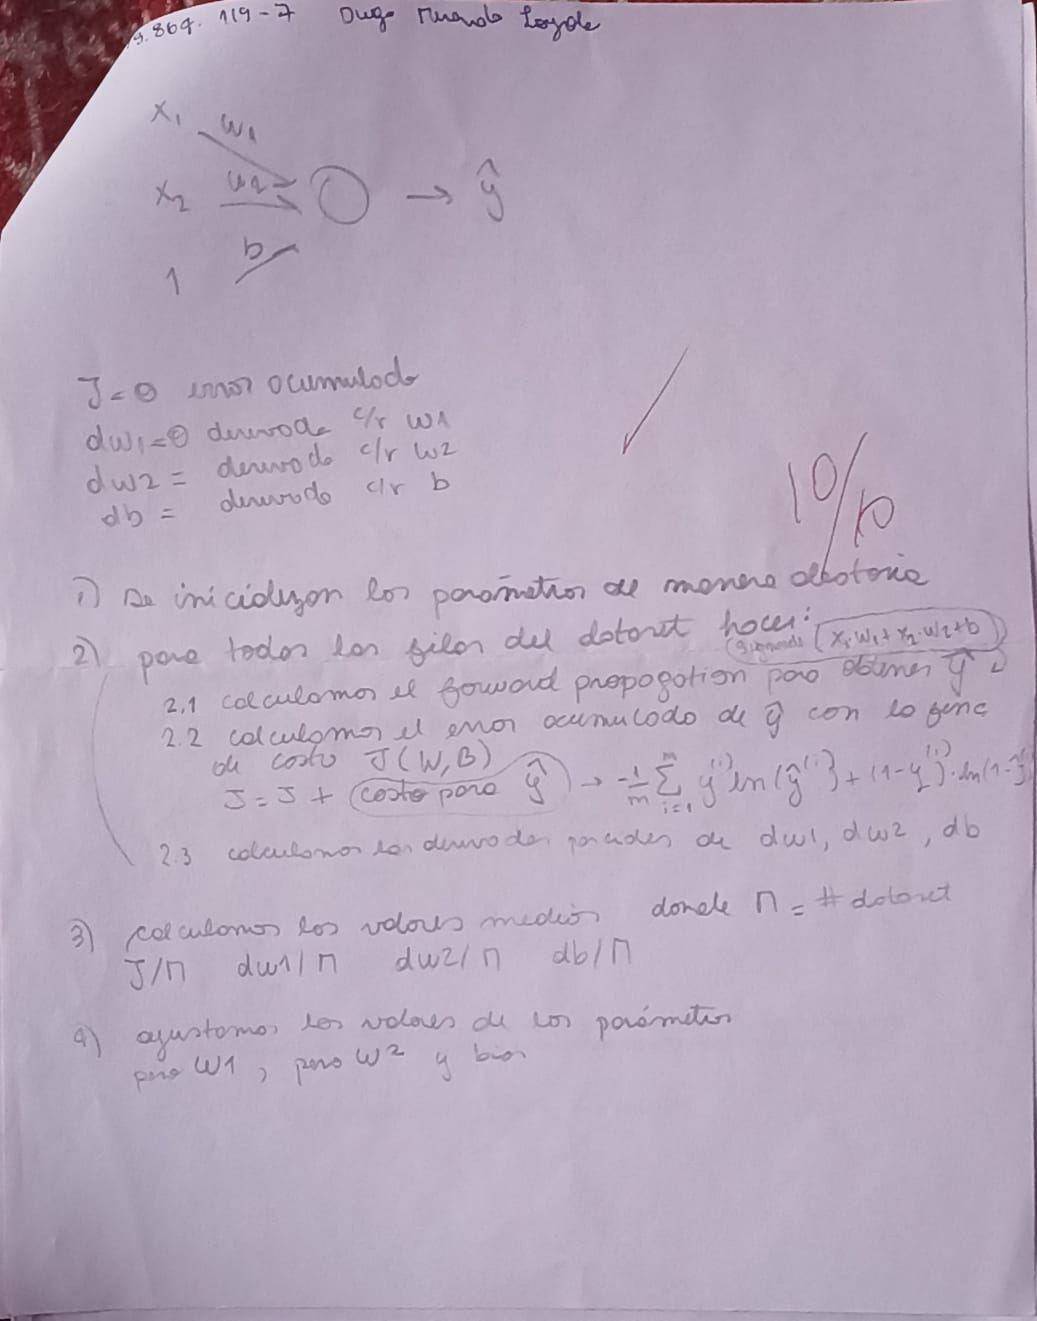 9.864.119-7 Diego Miranda Loyola
x₁ w₁
x₂ w2 → ŷ
1 b
J=0 error acumulado
dw1=0 derivada c/r w1
dw2 = derivada c/r w2
db = derivada c/r b
10/10
1) Se inicializan los parámetros de manera aleatoria
2) para todas las filas del dataset hacer:
(sigmoide (x₁.w₁+x₂.w₂+b)
2.1 calculamos el forward propagation para obtener ŷ
2.2 calculamos el error acumulado de ŷ con la func
de costo J(W,B)
J=J + (costo para ŷ) → -1/m Σ i=1 m y⁽ⁱ⁾ ln(ŷ⁽ⁱ⁾) + (1-y⁽ⁱ⁾).ln(1-ŷ
2.3 calculamos las derivadas parciales de dw1, dw2, db
3) calculamos los valores medios donde n = # dataset
J/n dw1/n dw2/n db/n
4) ajustamos los valores de los parámetros
para w1, para w2 y bias